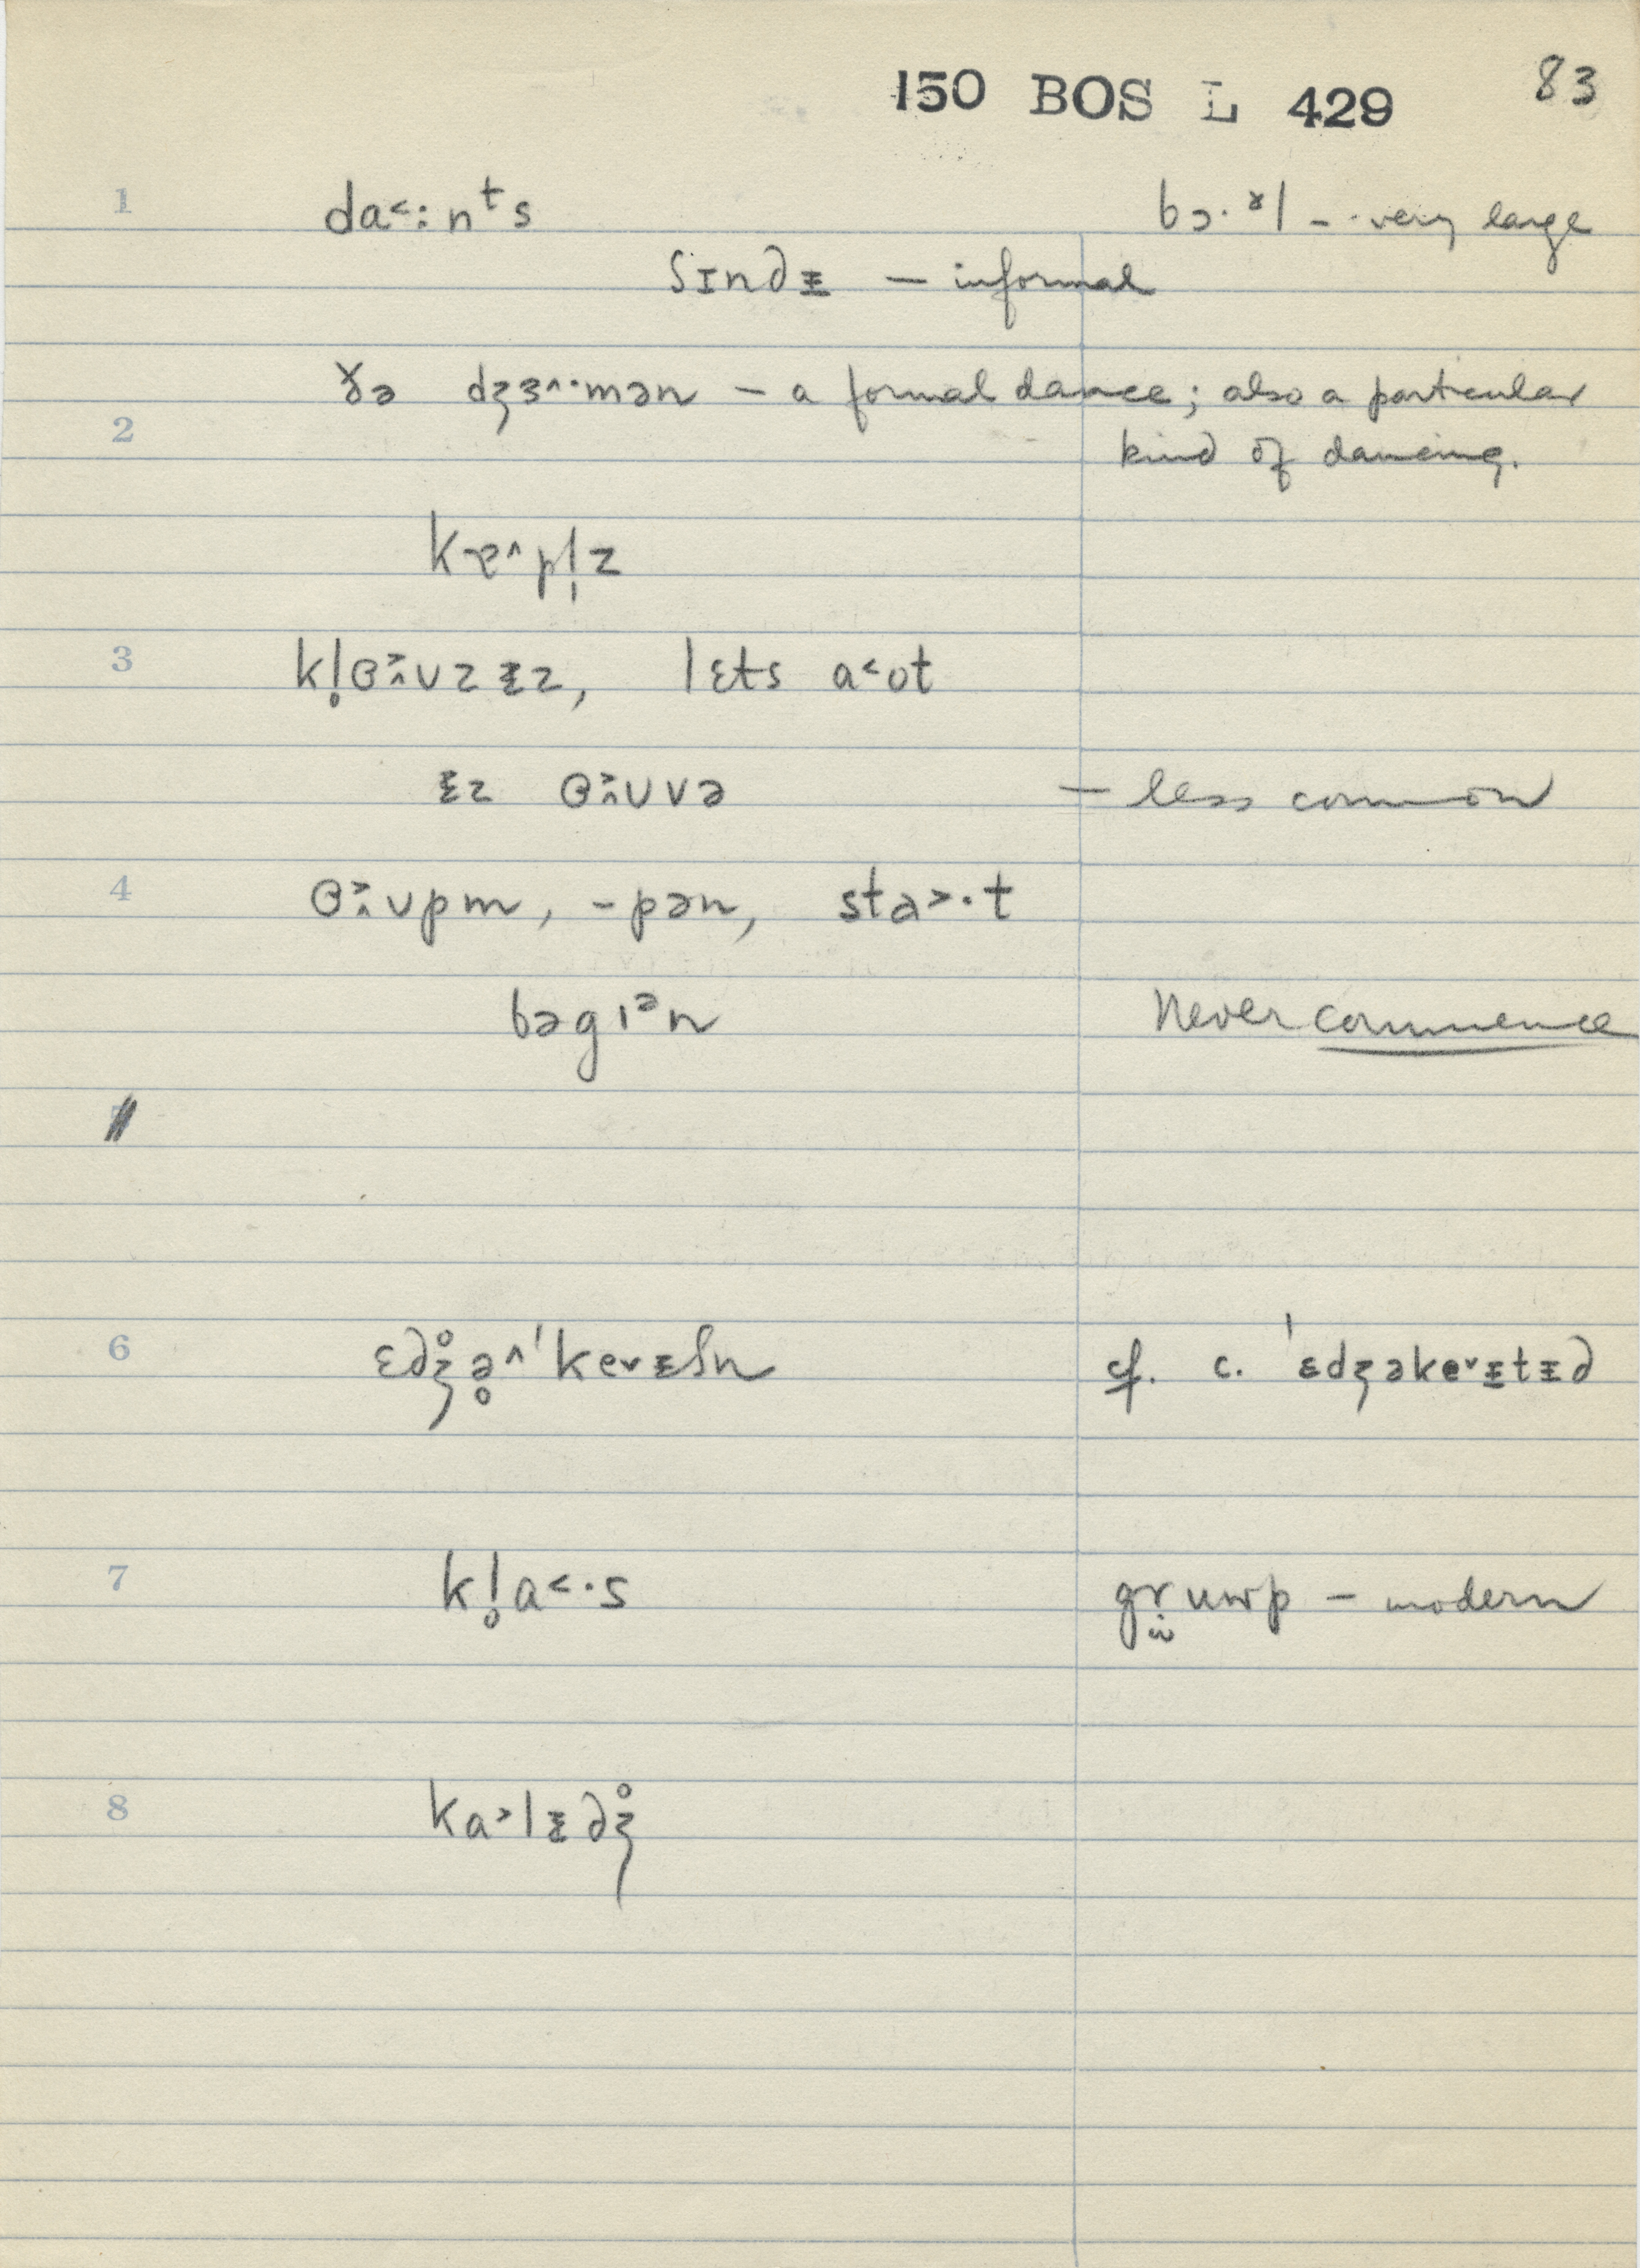 150 BOS L 429 83
1 da˂:nᵗs bɔ·ᵊl – very large
ʃɪndᵻ – informal
ðə dʒɜ˄·mən – a formal dance; also a particular
2 kind of dancing.
kɐ˄pl̩z
3 kl̥ɵ˃̭ʊzᵻz, lɛts a˂ʊt
ᵻz ɵ˃̭ʊvə – less common
4 ɵ˃̭ʊpm, -pən, sta˃·t
bəgɪᵊn Never commence
6 ɛdʒ̊ə̥˄ˈkeᵛᵻʃn cf. c. ˈɛdʒəkeᵛᵻtᵻd
7 kl̥a˂·s gr̤uʷp – modern
8 ka˃lᵻdʒ̊